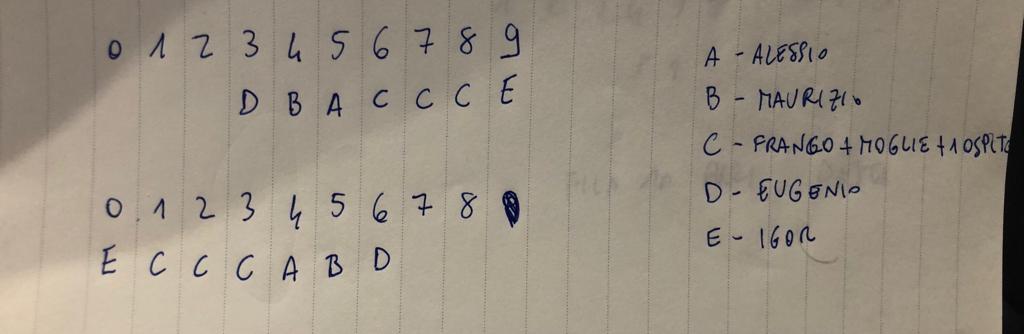 0 1 2 3 4 5 6 7 8 9
D B A C C C E
0 1 2 3 4 5 6 7 8
E C C C A B D
A - ALESSIO
B - MAURIZIO
C - FRANGO + MOGLIE + 1 OSPITE
D - EUGENIO
E - IGOR